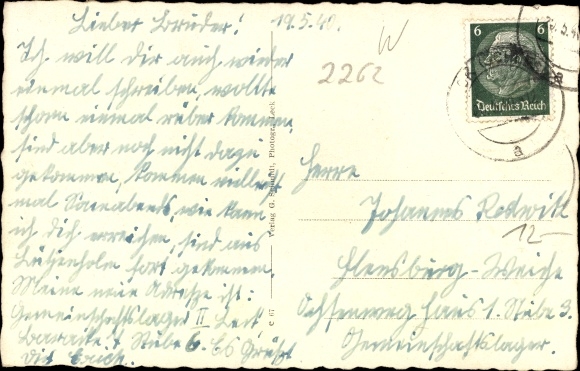 Lieber Bruder! 19.5.40.
Ich will dir auch wieder
einmal schreiben, wollte
schon einmal rüber kommen,
sind aber noch nicht dazu
gekommen, kommen vielleicht
mal Sonnabends, wie kann
ich dich erreichen, sind aus
Lützenholm fort gekommen.
Meine neue Adresse ist:
Gemeinschaftslager II Leck,
Baracke 7 Stube 6. Es Grüsst
Dich Erich.
2262
Verlag G. Schmidt, Photograf, Leck
C 67
6 6
Deutsches Reich
a
a
Herrn
Johannes Rodwitt
12-
Flensburg-Weiche
Ochsenweg Haus 1. Stube 3.
Gemeinschaftslager.